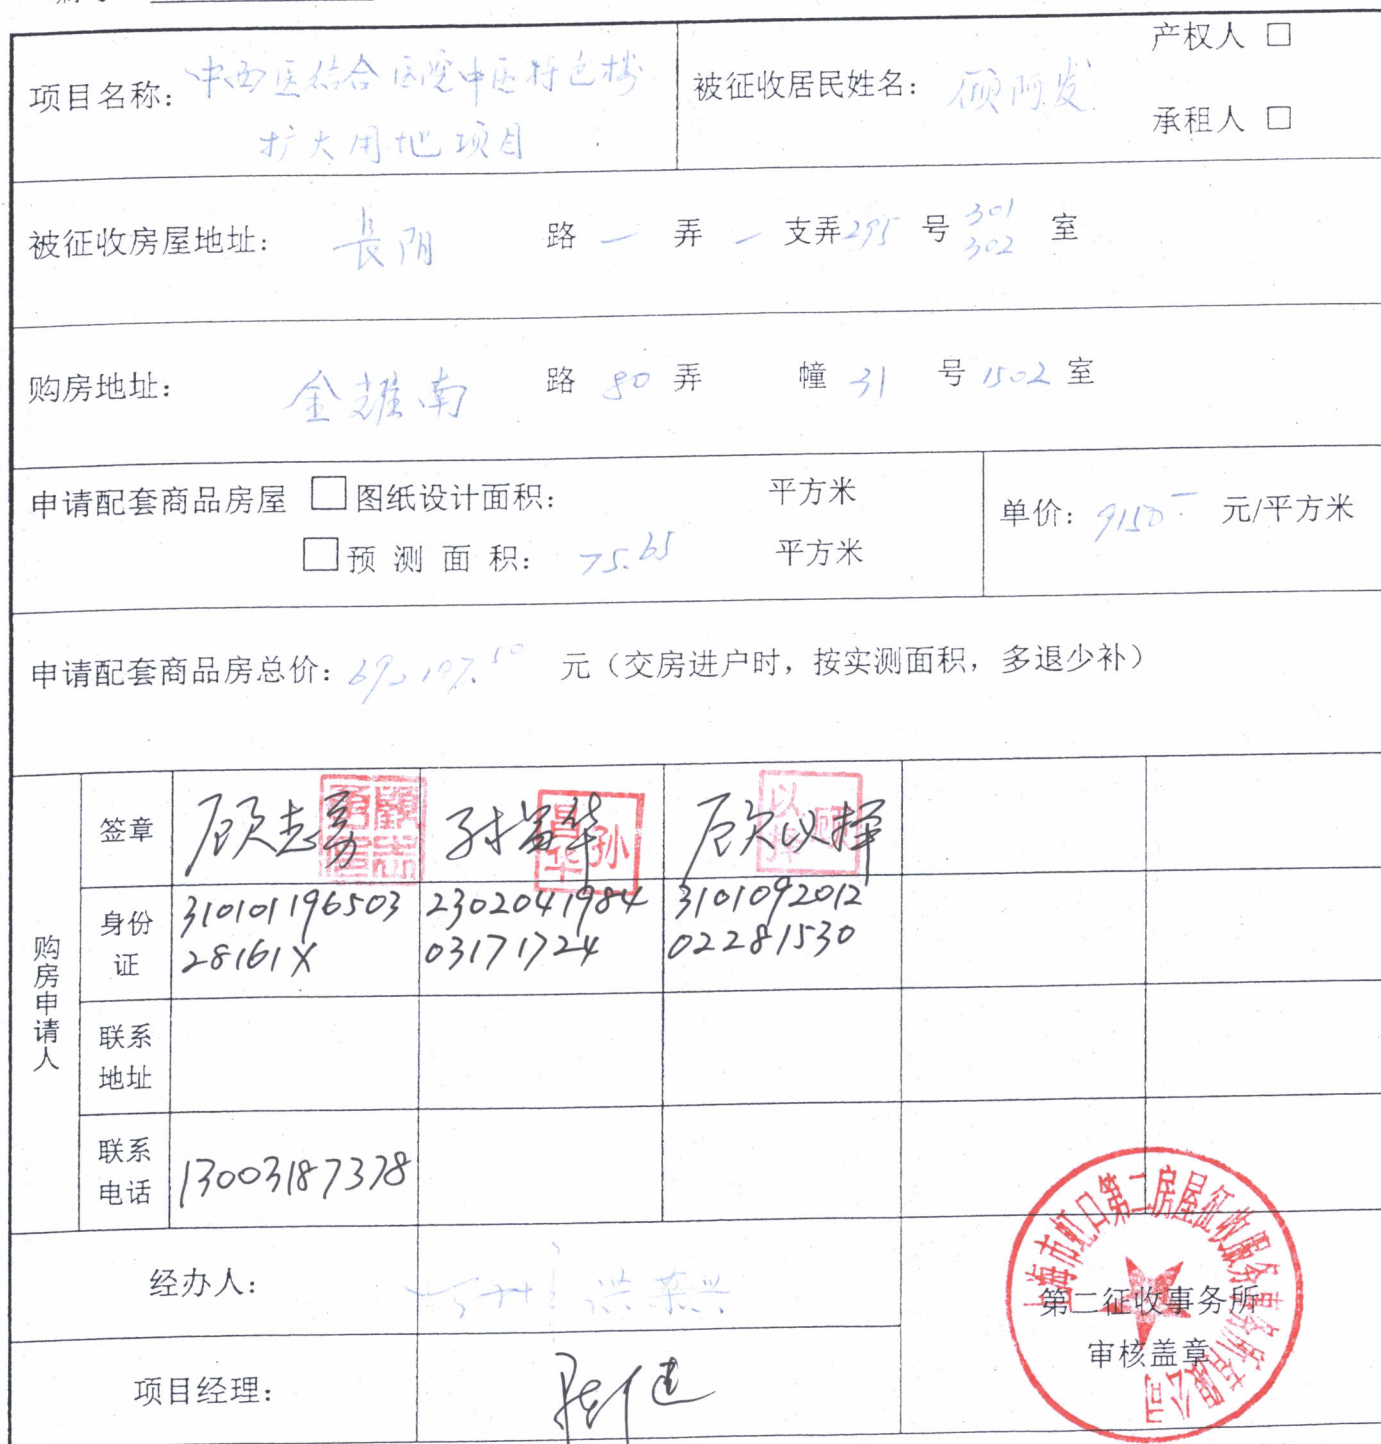 项目名称: 中西医结合医院中医特色楼
扩大用地项目
被征收居民姓名: 顾阿发
产权人 □
承租人 □
被征收房屋地址: 長阳 路 一 弄 一 支弄 295 号 301 302 室
购房地址: 金雄南 路 80 弄 幢 31 号 1502 室
申请配套商品房屋 □图纸设计面积: 平方米
□预 测 面 积: 75.65 平方米
单价: 9150- 元/平方米
申请配套商品房总价: 692,197.50 元（交房进户时，按实测面积，多退少补）
购房申请人
签章 顾志勇 孙昌华 顾以择
身份证 310101196503 2302041984 3101092012
28161X 03171724 02281530
联系
地址
联系
电话 13003187378
经办人: 洪荣兴
项目经理:
上海市虹口第二房屋征收服务事务所有限公司
第二征收事务所
审核盖章